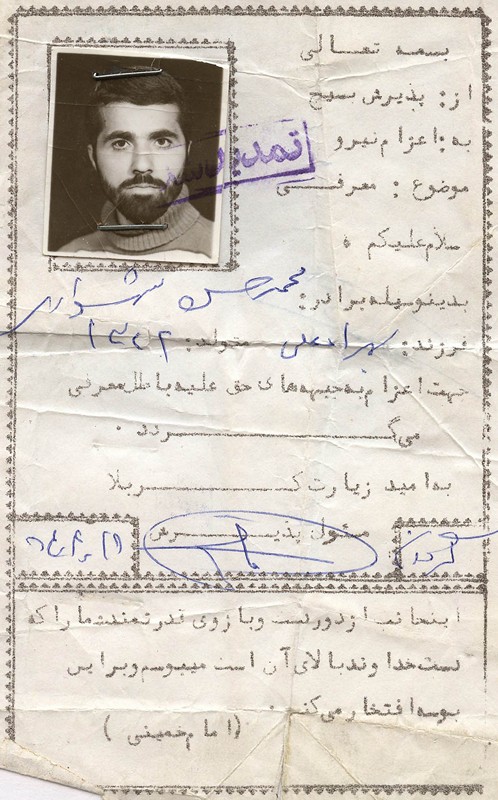 بسمه تعالی
از: پذیرش بسیج
به: اعزام نیرو
موضوع: معرفی
سلام علیکم
بدینوسیله برادر: محمد حسن
فرزند: متولد: ۱۳۴۲
جهت اعزام به جبهه های حق علیه باطل معرفی
می‌گردد.
به امید زیارت کربلا
مسئول پذیرش
اینجانب از دور دست و بازوی قدرتمند شما را که
دست خداوند بالای آن است میبوسم و بر این
بوسه افتخار می‌کنم.
(امام خمینی)